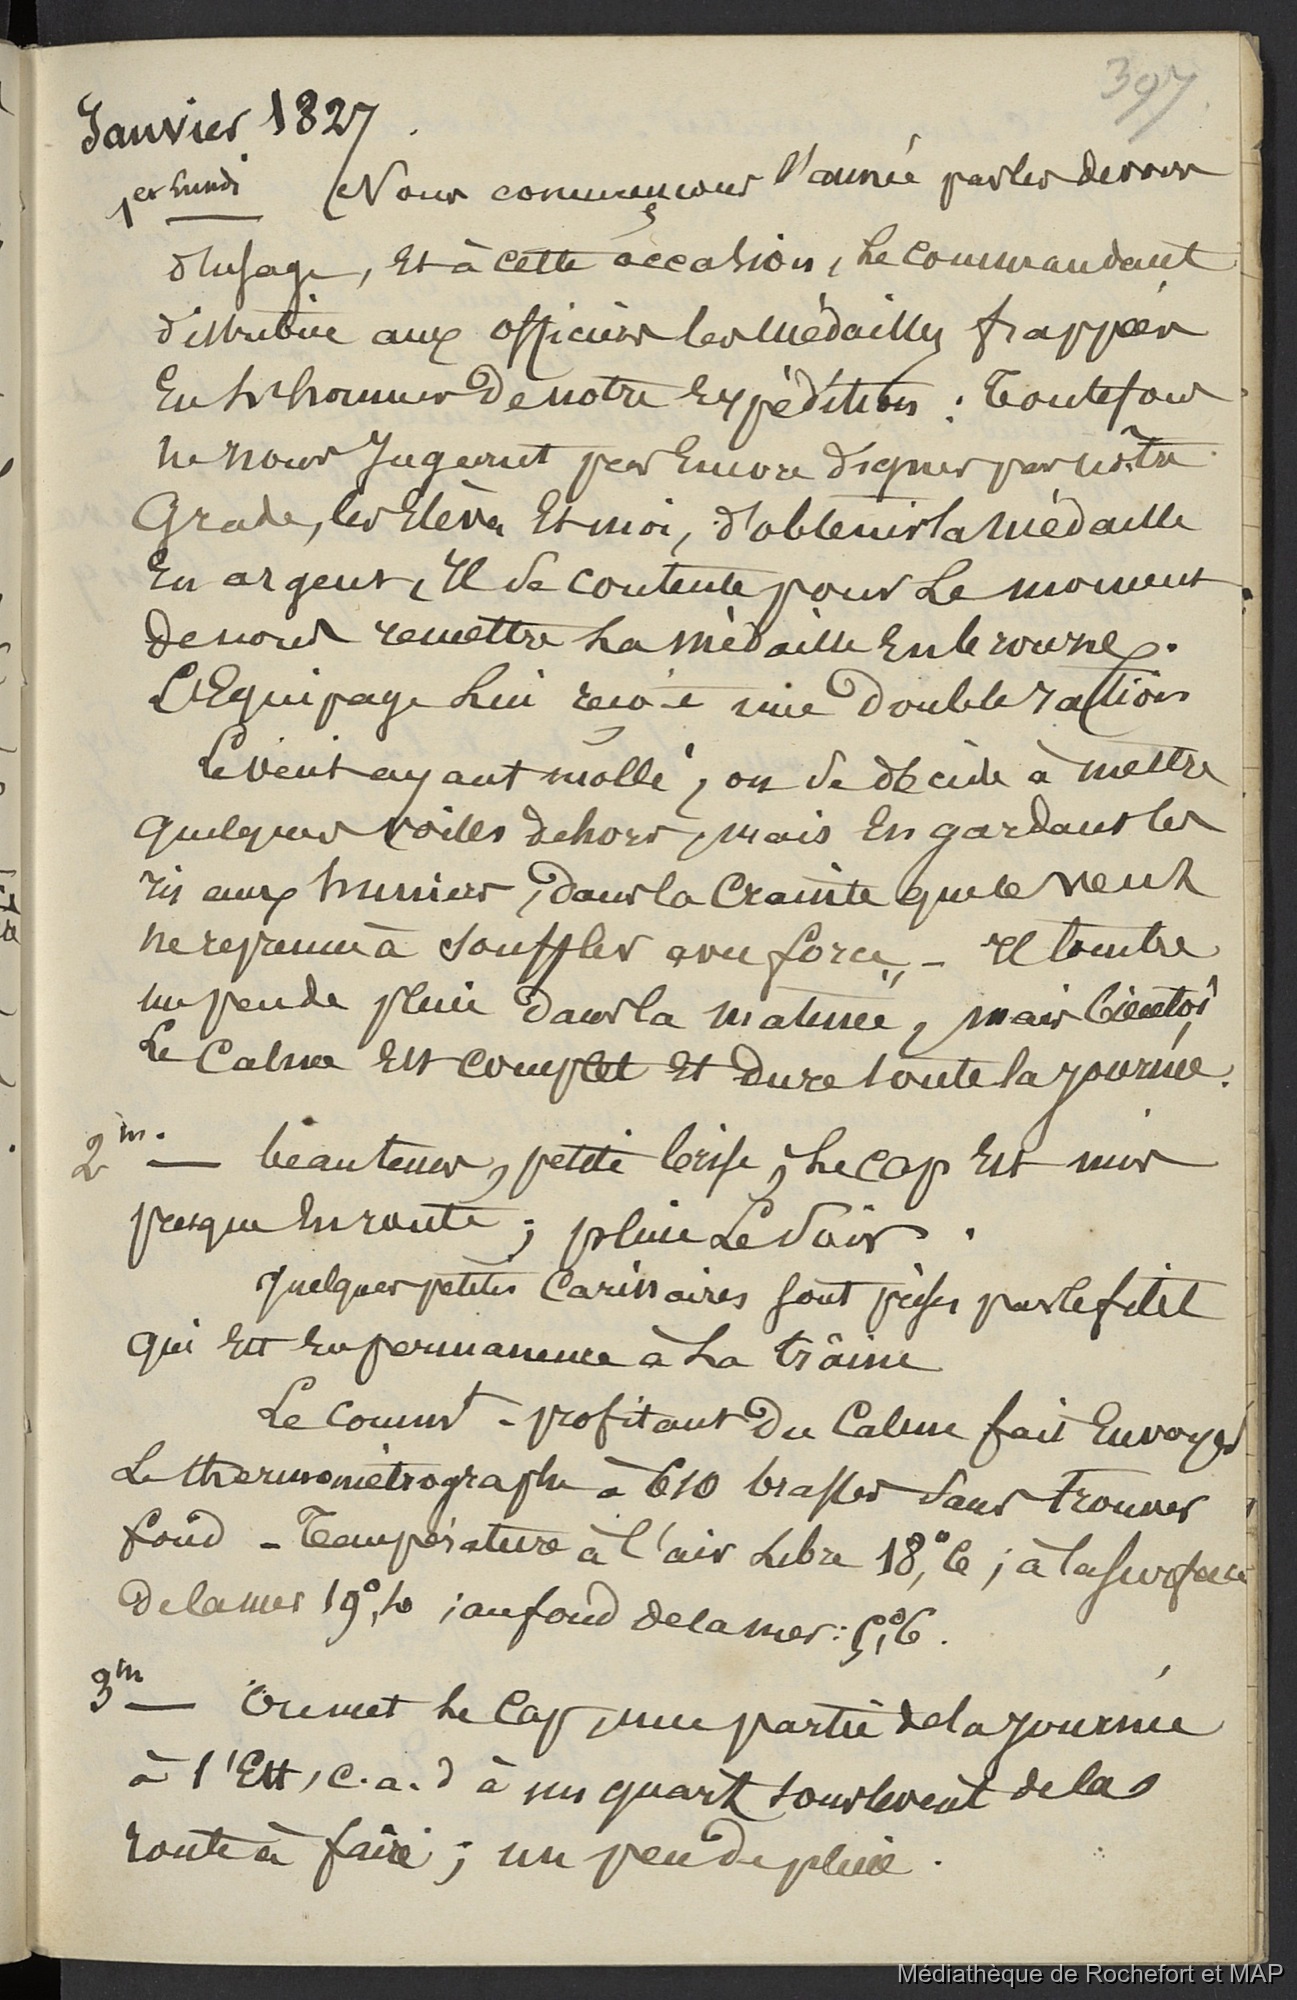 397.
Janvier 1827.
1er Lundi Nous commençons l'année par les devoirs
d'usage, Et à cette occasion, Le Commandant
distribue aux officiers les Médailles frappées
En l'honneur De notre Expédition : Toutefois
ne nous Jugeant pas Encore dignes par nôtre
Grade, les Elèves Et moi, d'obtenir la Médaille
En argent, Il se contente pour Le moment
de nous remettre La médaille En bronze.
L'Equipage Lui reçoit une Double ration
Le vent ayant molli, on se décide à mettre
quelques voiles dehors, mais En gardant les
ris aux huniers, Dans la Crainte que le vent
ne reprenne à souffler avec force, - Il tombe
un peu de pluie Dans la matinée, mais bientôt
Le Calme Est complet Et dure toute la journée.
2 m. — beau tems, petite brise, Le cap Est mis
presque En route ; pluie Le Soir .
quelques petites Carinaires sont prises par le filet
qui Est En permanence à La traîne
Le Commt - profitant Du Calme fait Envoyer
Le thermométrographe à 610 brasses Sans trouver
fond - Température à l'air Libre 18°,6 ; à la surface
De la mer 19°, ; au fond de la mer : 5°,6 .
3 m — On met Le Cap, une partie de la journée
à l'Est, c.a.d à un quart sous le vent de la
route à faire ; un peu De pluie .
Médiathèque de Rochefort et MAP